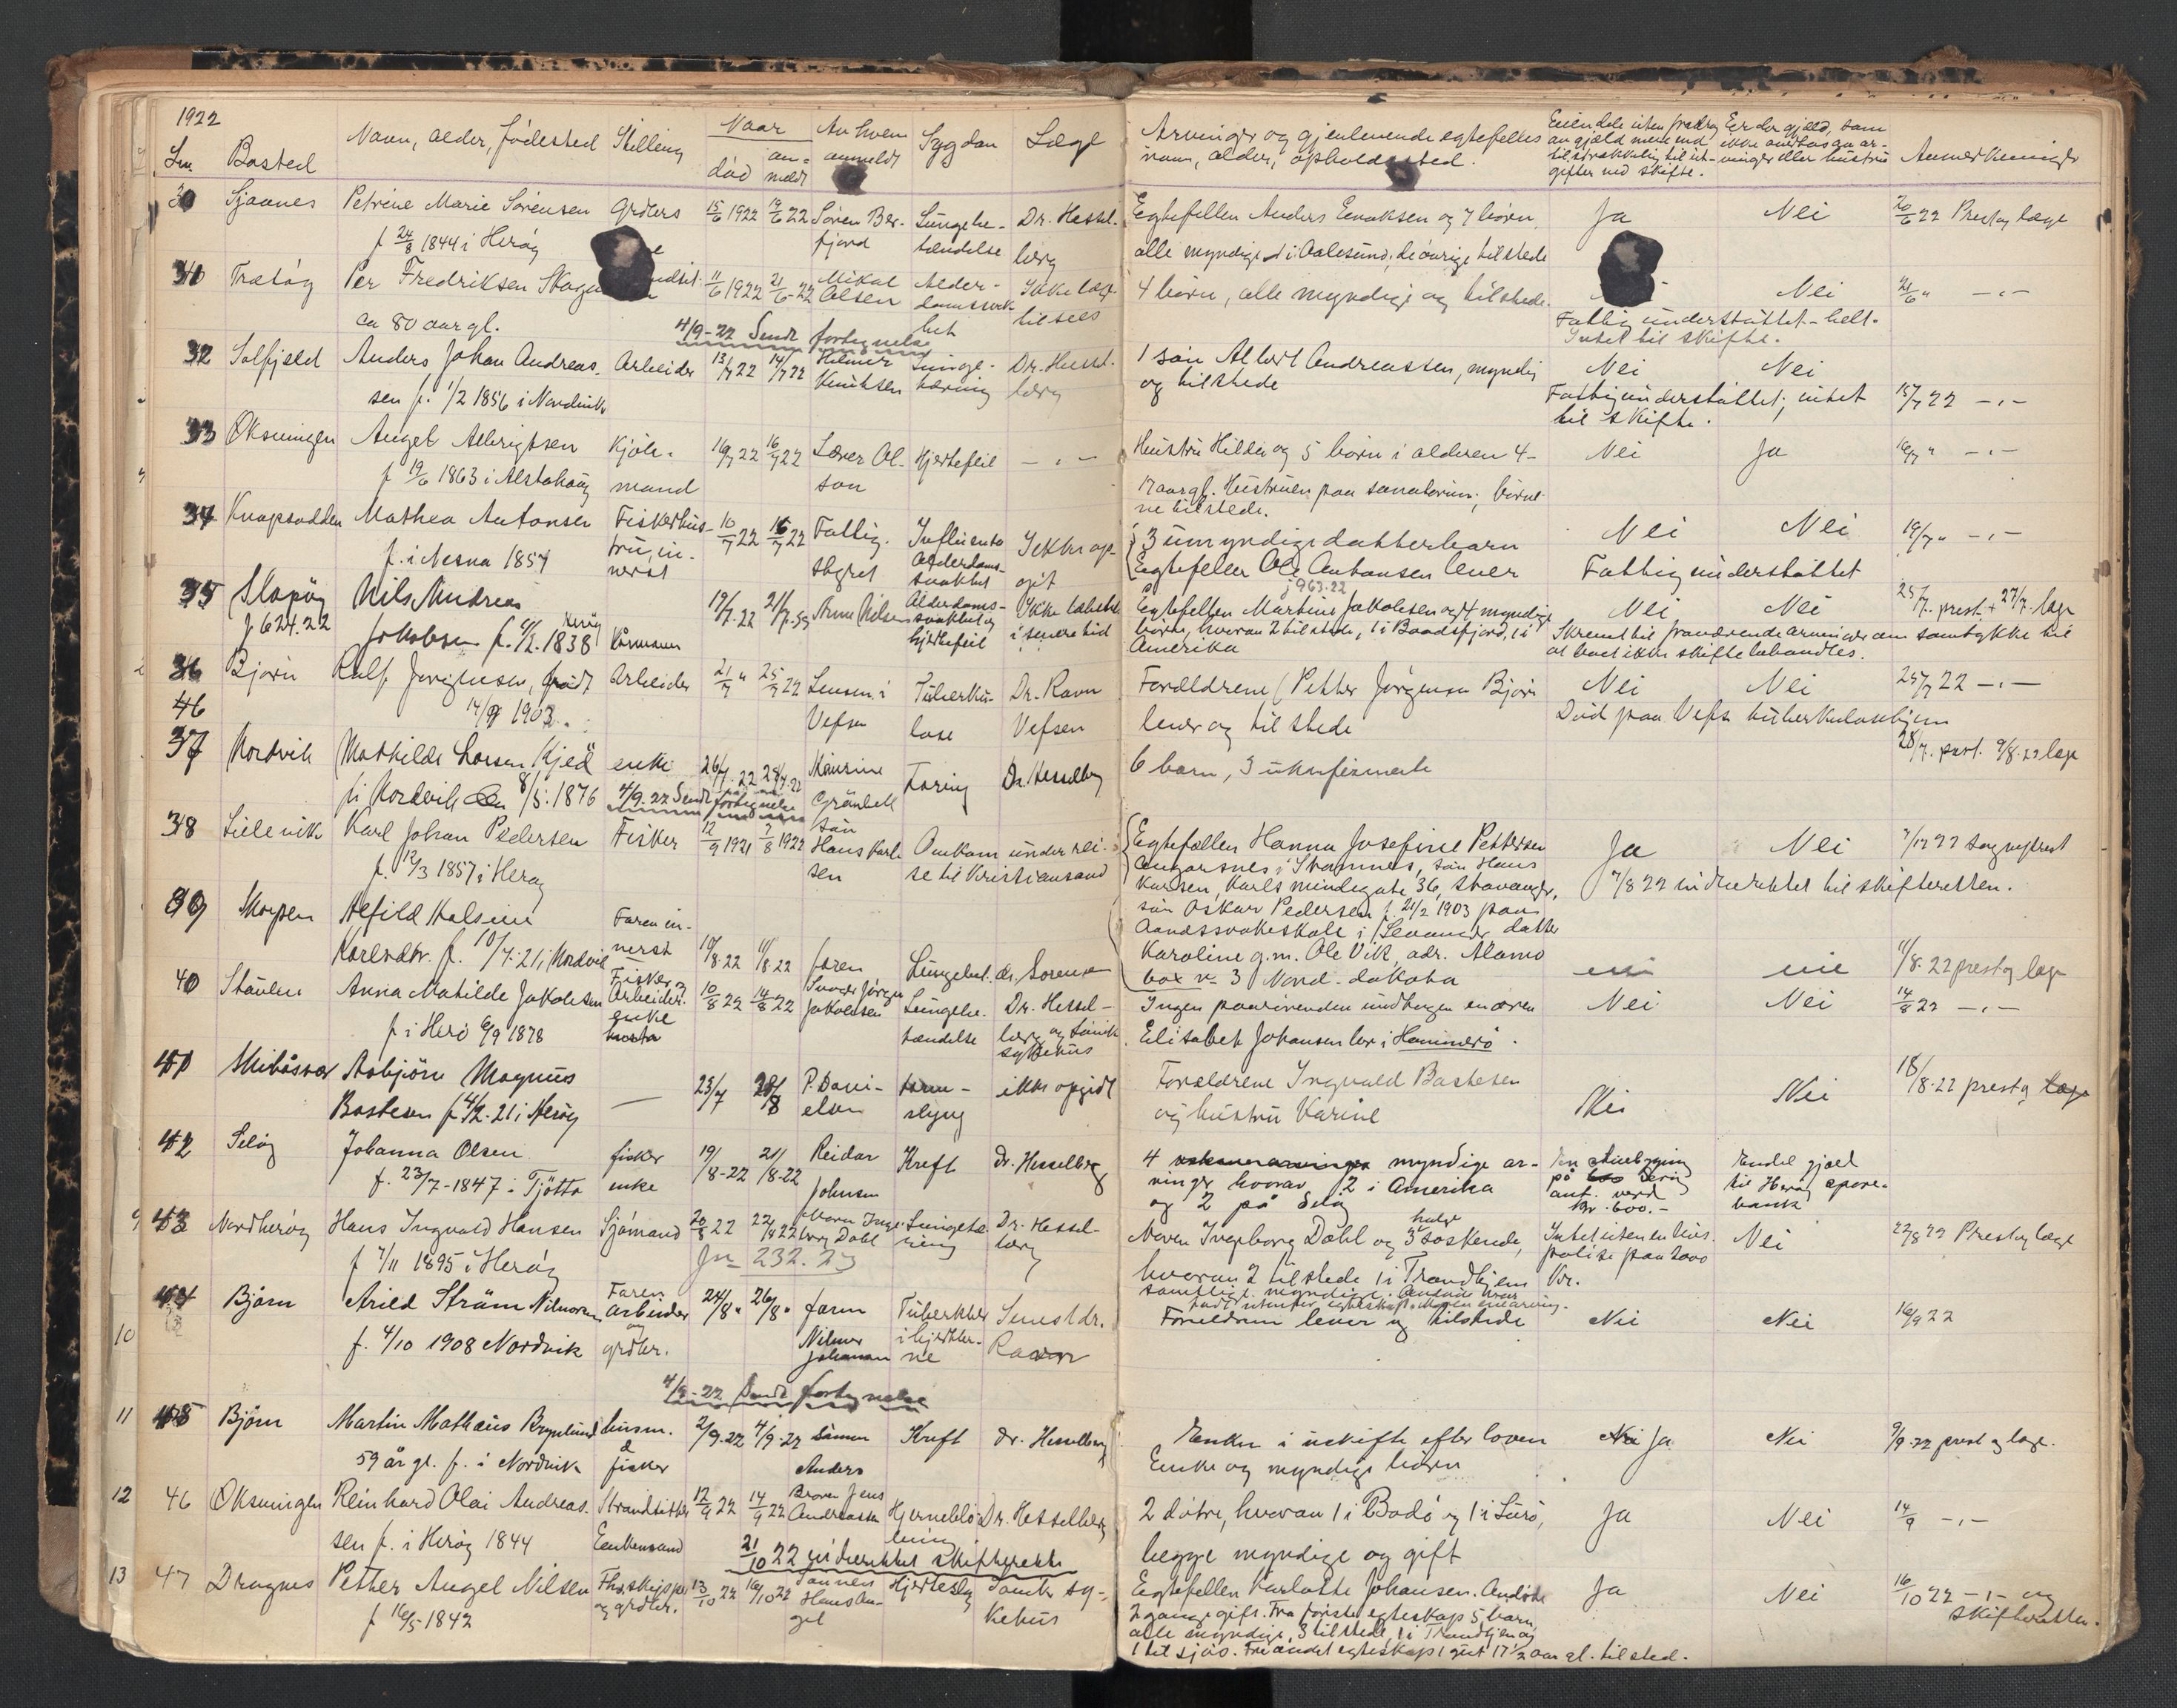 1922
Lnr. Bosted Navn, alder, fødested Stilling Naar død anmeldt Av hvem anmeldt Sygdom Læge
Arvinger og gjenlevende egtefelles navn, alder, opholdssted.
Eiendele uten fradrag av gjæld mere end tilstrækkelig til utgifter ved skifte.
Er der gjæld, som ikke overtas av arvinger eller hustru
Anmerkninger
30 Sjaanes Petrine Marie Sørensen Grders 15/6 1922 19/6 22 Søren Berfjord Lungebetændelse Dr. Hesselberg
f 24/8 1844 i Herøy
Egtefellen Anders Enoksen og 7 børn, Ja Nei 20/6 22 Prest og læge
alle myndige 1 i Aalesund, de øvrige tilstede
31 Trætøy Per Fredriksen Skage 11/6 1922 21/6-22 Mikal Olsen Alderdomssvakhet Ikke læge tilsees
ca 80 aar gl.
4 børn, alle myndige og tilstede. Nei 21/6 " -"-
Fattigunderstøttet - helt.
Intet til skifte.
4/9-22 Sendt fortegnelse
32 Solfjeld Anders Johan Andreassen f. 1/2 1856 i Nordvik Arbeider 13/7 22 14/7 22 Hilmer Kenriksen Lungetæring Dr. Hesselberg
1 søn Albert Andreassen, myndig og tilstede Nei Nei
Fattigunderstøttet, intet til skifte. 15/7 22 -"-
33 Øksningen Angel Albrigtsen Kjøbmand 16/7 22 16/7 22 Lærer Olson Hjertefeil -"-
f 19/6 1863 i Alstahaug
Hustru Hilda og 5 børn i alderen 4-17 aar gl. Hustruen paa sanatorium, børnene tilstede. Nei Ja 16/7 " -"-
34 Knapsodden Mathea Antonsen Fiskerhustru, innerst 10/7 22 16/7 22 Fattigstyret Influensa Alderdomssvakhet Ikke opgit
f. i Nesna 1854
3 umyndige datterbarn Nei Nei 19/7 " -"-
Egtefellen Ole Antonsen lever Fattigunderstøttet
j 963.22
35 Slapøy Nils Andreas Jakobsen f. 4/2. 1838 Kårmann 19/7.22 21/7.22 Arne Nilsen Alderdomssvakhet og hjertefeil Ikke lægetilsed i senere tid
J 624.22
Egtefellen Martine Jakobsen og 4 myndige børn, hvorav 2 tilstede, 1 i Baadsfjord, 1 i Amerika Nei Nei 25/7. prest + 27/7. læge
Skrevet til fraværende arvinger om samtykke til at boet ikke skiftebehandles.
36 Bjørn Ralf Jørgensen, født 14/9 1903. Arbeider 21/7 " 25/7 22 Lensm. i Vefsn Tuberkulose Dr. Ravn Vefsen
46
Forældrene (Petter Jørgensen Bjørn Nei Nei 25/7 22 -"-
lever og tilstede Død paa Vefsn tuberkulosehjem
37 Nordvik Mathilde Larsen Kjed enke 26/7.22 28/7.22 Maurine Grønbekk Tæring Dr. Hesselberg
f. i Nordvik den 8/5. 1876
6 barn, 3 ukonfirmerte 28/7. prest. 9/8.22 læge
4/9.22 Sendt fortegnelse
38 Lielevik Karl Johan Pedersen Fisker 12/9 1921 7/8 1922 søn Hans Karlsen Omkom under reise til Kristiansand
f. 12/3 1857 i Herøy
Egtefællen Hanna Josefine Pettersen Ja Nei 7/8 22 sogneprest
Angarsnes i Stamnes, søn Hans
Karlsen, Karls mindegate 36, Stavanger, 7/8 22 indberettet til skifteretten.
søn Oskar Pedersen f. 21/2 1903 paa
Aandssvakeskole i Levanger datter
Karoline g.m. Ole Vik, adr. Alamo
box nr 3 Nord-dakota
39 Skorpen Alfild Kalsine Karlsdtr. f. 10/4.21 i Nordvik Faren innerst 10/8.22 11/8.22 faren Lungebet. dr. Sorensen
nei nei 11/8.22 prest og læge
40 Staulen Anna Matilde Jakobsen Fisker og Arbeider enke 10/8 22 14/8 22 Svoger Jørgen Jakobsen Lungebetændelse Dr. Hesselberg og Sandn. sykehus
f i Herø 6/9 1878
Ingen paarørende undtagen en søster Nei Nei 14/8 22 -"-
Elisabet Johansen bor i Hammerø.
41 Skibåsvær Asbjørn Magnus Bastesen f 4/2.21 i Herøy — 23/7 20/8 P. Danielsen ikke opgidt
Forældrene Ingvald Bastesen og hustru Karine Nei Nei 18/8.22 prest og læge
42 Seløy Johanna Olsen fisker enke 19/8-22 21/8-22 Reidar Johnsen Kreft dr. Hesselberg
f. 23/7-1847 i Tjøtta
4 myndige arvinger hvorav 2 i Amerika og 2 på Seløy
En stuebygning på Herøy ant. verd kr. 600.-
Endel gjæld til Herøy sparebank
43 Nordherøy Hans Ingvald Hansen Sjømand 20/8 22 22/8 22 Moren Ingeborg Dahl Lungetæring Dr. Hesselberg
f 7/11 1895 i Herøy Jnr 232.23
Moren Ingeborg Dahl og 3 halvsøskende, Intet uten en livspolise paa 2000 Kr. Nei 22/8 22 Prest og læge
hvorav 2 tilstede 1 i Trondhjem
samtlige myndige. Avdøde var
født utenfor egteskap. Moren enearving.
44 Bjørn Arild Strøm Nilmorsen Faren arbeider og grdbr. 24/8 " 26/8 " faren Nilmor Johansen Tuberkler i hjertehinne Senest dr. Ravn
10 f. 4/10 1908 Nordvik
Foreldrene lever og tilstede Nei Nei 16/9 22
4/9-22 Sendt fortegnelse
11 45 Bjørn Martin Mathæus Brynlund husm. & fisker 2/9.22 4/9.22 sønnen Anders Kreft dr. Hesselberg
59 år gl. f. i Nordvik
Enken i uskifte efter loven Nei Ja Nei 9/9.22 prest og læge.
Enke og myndige børn
12 46 Øksningen Reinhard Olai Andreassen f. i Herøy 1844 Strandsitter Enkemand 12/9 22 14/9 22 Broren Jens Andreassen Hjerneblødning Dr. Hesselberg
2 døtre, hvorav 1 i Bodø og 1 i Lurø, Ja Nei 14/9 -"-
begge myndige og gift
21/10 22 indberettet skifteretten
13 47 Dragnes Petter Angel Nilsen Fhv. skipper og grdbr. 13/10 22 16/10 22 Sønnen Hans Angel Hjerteslag Sandn. sykehus
f 16/5-1842
Egtefellen Karlotte Johansen. Avdøde Ja Nei 16/10 22 -"- og skifteretten.
2 gange gift. Fra første egteskap 5 barn,
alle myndige, 3 tilstede, 1 i Trondhjem og
1 til sjøs. Fra andet egteskap 1 gut 17 1/2 aar gl. tilsted.